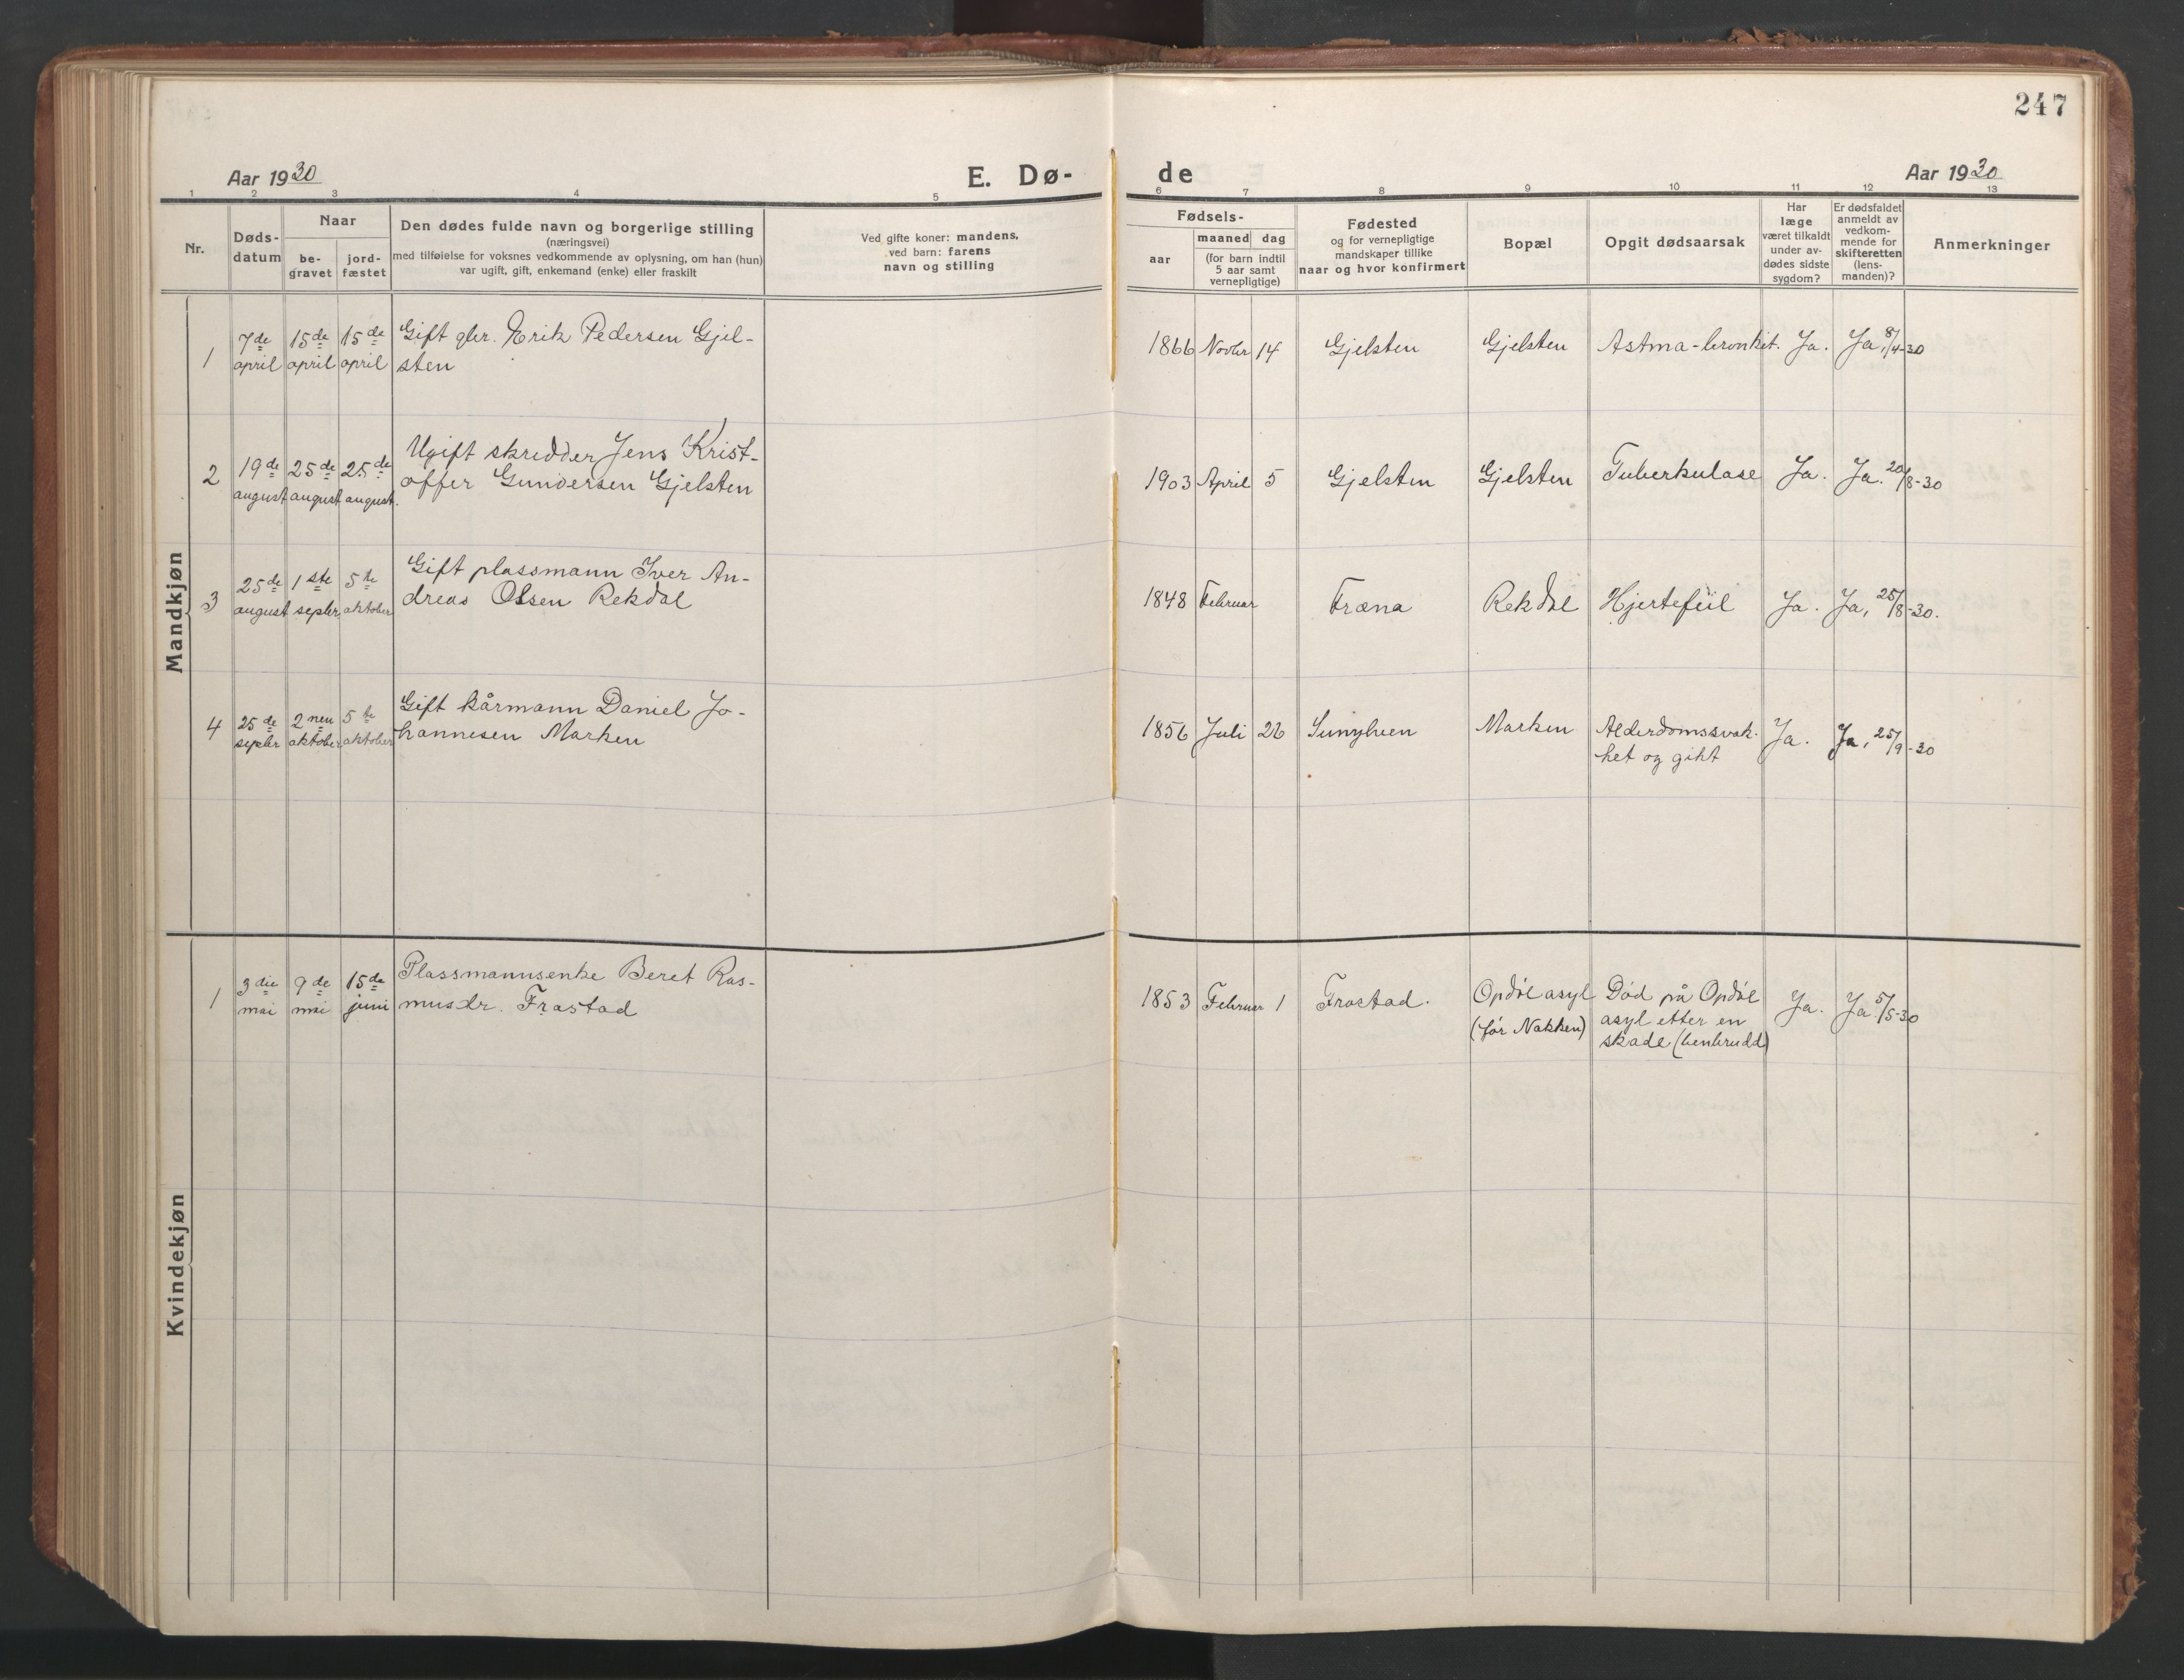 247
Aar 1930
E. Dø-
de
Aar 1930
1 2 3 4 5 6 7 8 9 10 11 12 13
Nr.
Døds-
datum
Naar
be-
gravet
jord-
fæstet
Den dødes fulde navn og borgerlige stilling
(næringsvei)
med tilføielse for voksnes vedkommende av oplysning, om han (hun)
var ugift, gift, enkemand (enke) eller fraskilt
Ved gifte koner: mandens,
ved barn: farens
navn og stilling
Fødsels-
aar
maaned dag
(for barn indtil
5 aar samt
vernepligtige)
Fødested
og for vernepligtige
mandskaper tillike
naar og hvor konfirmert
Bopæl
Opgit dødsaarsak
Har
læge
været tilkaldt
under av-
dødes sidste
sygdom?
Er dødsfaldet
anmeldt av
vedkom-
mende for
skifteretten
(lens-
manden)?
Anmerkninger
Mandkjøn
1
7de
april
15de
april
15de
april
Gift gbr. Erik Pedersen Gjel-
sten
1866 Novbr 14
Gjelsten
Gjelsten
Astma-bronkit.
Ja.
Ja, 8/4-30
2
19de
august
25de
august
25de
august.
Ugift skredder Jens Krist-
offer Gundersen Gjelsten
1903 April 5
Gjelsten
Gjelsten
Tuberkulose
Ja.
Ja. 20/8-30
3
25de
august
1ste
septbr.
5te
oktober
Gift plassmann Iver An-
dreas Olsen Rekdal
1848 Februar
Fræna
Rekdal
Hjertefeil
Ja.
Ja, 25/8-30.
4
25de
septbr
2nen
oktober
5te
oktober
Gift kårmann Daniel Jo-
hannesen Marken
1856 Juli 22
Sunylven
Marken
Alderdomssvak-
het og gikt
Ja.
Ja, 25/9-30
Kvindekjøn
1
3die
mai
9de
mai
15de
juni
Plassmannsenke Beret Ras-
musdr. Frostad
1853 Februar 1
Frostad.
Opdøl asyl
(før Nakken)
Død på Opdøl
asyl etter en
skade (benbrudd)
Ja.
Ja 5/5-30